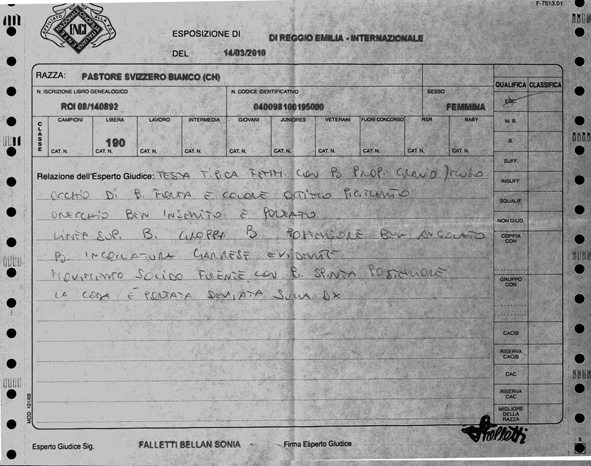 F-7513.01
ENCI
ESPOSIZIONE DI DI REGGIO EMILIA - INTERNAZIONALE
DEL 14/03/2010
RAZZA: PASTORE SVIZZERO BIANCO (CH)
QUALIFICA CLASSIFICA
N. ISCRIZIONE LIBRO GENEALOGICO N. CODICE IDENTIFICATIVO SESSO
ROI 08/140892 040098100195000 FEMMINA
CLASSE
CAMPIONI LIBERA LAVORO INTERMEDIA GIOVANI JUNIORES VETERANI FUORI CONCORSO RSR BABY
190
CAT. N. CAT. N. CAT. N. CAT. N. CAT. N. CAT. N. CAT. N. CAT. N. CAT. N. CAT. N.
M. B.
B.
SUFF.
INSUFF.
SQUALIF.
NON GIUD.
COPPIA CON
GRUPPO CON
CACIB
RISERVA CACIB
CAC
RISERVA CAC
MIGLIORE DELLA RAZZA
Relazione dell'Esperto Giudice: TESTA TIPICA FEMM. CON B. PROP. CRANIO / MUSO
OCCHIO DI B. FORMA E COLORE OTTIMO PIGMENTO
ORECCHIO BEN INSERITO E PORTATO
LINEA SUP. B. GROPPA B POSTERIORE BEN ANGOLATO
B. INCOLLATURA GARRESE EVIDENTE
MOVIMENTO SOLIDO FLUENTE CON B. SPINTA POSTERIORE
LA CODA È PORTATA DEVIATA SULLA DX
MOD. 101/09
Esperto Giudice Sig. FALLETTI BELLAN SONIA Firma Esperto Giudice
Falletti